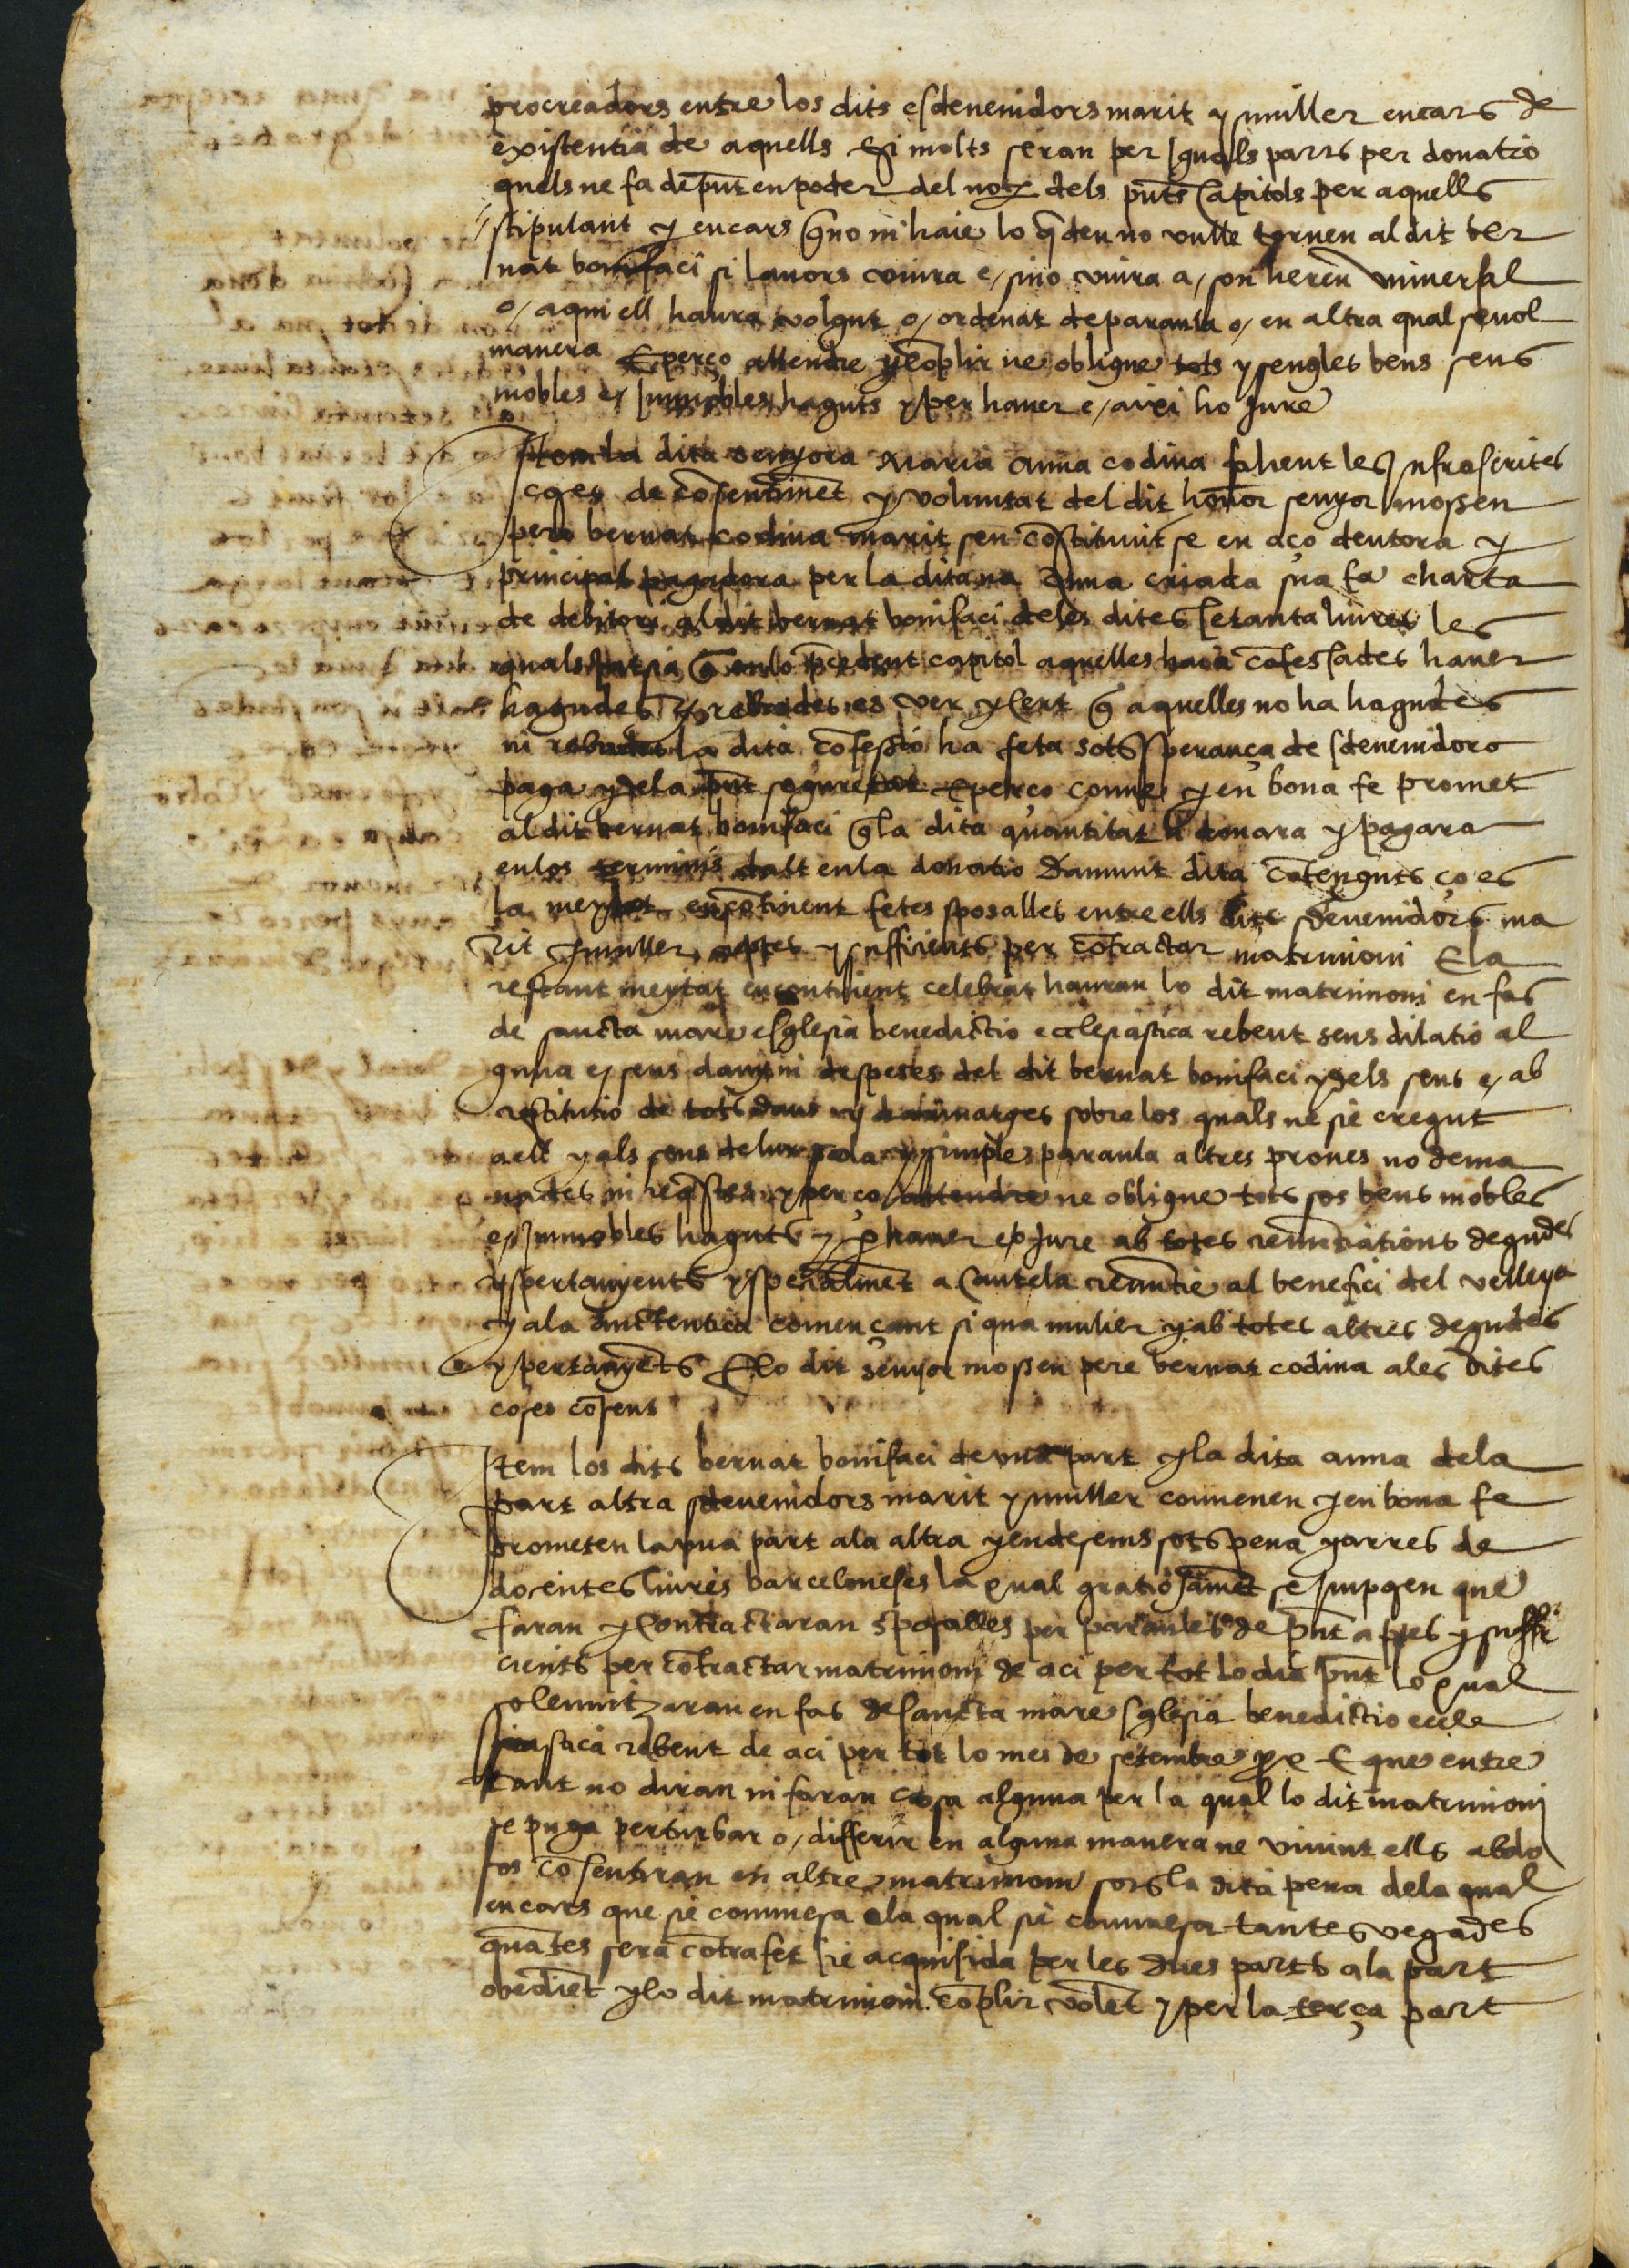 procreadors entre los dits esdeuenidors marit y muller encars de
existentia de aquells E si molts seran per Iguals parts per donatio
quels ne fa de pnt en poder del noy dels pnts Capitols per aquells
stipulant y encars q̃ no ni haie lo q̃ deu no vulle tornen al dit ber
nat bonifaci si lauors viura e/ sino viura a/ son hereu vniuersal
o/ aqui ell haura volgut o/ ordenat de paraula o/ en altra qual seuol
manera E perço attendre y cõplir ne obligue tots y sengles bens seus
mobles e/ Immobles haguts y per hauer e/ axi ho Jure
Item la dita senyora Maria anna codina fahent les Infrascrites
coses de cõsentimẽt y voluntat del dit honor senyor mossen
pere bernat codina marit seu cõstituint se en aço deutora y
principal pagadora per la dita na Anna criada sua fa charta
de debitori al dit bernat bonifaci deles dites setanta liures les
quals q̃ en lo pcedent capitol aquelles haia cõfessades hauer
hagudes y rebudes es ver y Cert q̃ aquelles no ha hagudes
ni rebudes la dita cõfessio ha feta sots sperança de sdeuenidoro
paga y dela pnt seguretat E perço conue y en bona fe promet
al dit bernat bonifaci q̃ la dita quantitat li donara y pagara
en los terminis dalt en la donatio damunt dita cõtenguts ço es
la meytat encõtinent fetes sposalles entre ells dits sdeuenidors ma
rit y muller aptes y sufficients per cõtractar matrimoni E la
restant meytat encontinent celebrat hauran lo dit matrimoni en fas
de sancta mare esglesia benedictio ecclesiastica rebent sens dilatio al
guna e/ sens dany ni despeses del dit bernat bonifaci y dels seus e/ ab
restitutio de tots dans y damnatges sobre los quals ne sie cregut
aell y als seus de lur sola y simple paraula altres proues no dema
nades ni reqstes y per ço attendre ne obligue tots sos bens mobles
e/ Immobles haguts y p hauer e/ Jure ab totes renuntiations degudes
y pertanyents y specialmẽt a Cautela renuntie al benefici del velleya
y ala auctentica començant si qua mulier y ab totes altres degudes
y pertanyẽts E lo dit senyor mossen pere bernat codina ales dites
coses cõsens
Item los dits bernat bonifaci de vna part y la dita anna dela
part altra sdeuenidors marit y muller conuenen y en bona fe
prometen la vna part ala altra y endesems sots pena y arres de
docentes liures barceloneses la qual gratiosamẽt se Imposen que
faran y Contractaran sposalles per paraules de pnt aptes y suffi
cients per cõtractar matrimoni de aci per tot lo dia pnt lo qual
solemnitzaran en fas de sancta mare sglesia benedictio eccle
siastica rebent de aci per tot lo mes de setembre E que entre
tant no diran ni faran cosa alguna per la qual lo dit matrimoni
se puga perturbar o/ differir en alguna manera ne viuint ells abdo
sos cõsentiran en altre matrimoni sots la dita pena dela qual
en cars que sie comesa ala qual sie comesa tantes vegades
quantes sera cõtrafet sie acquisida per les dues parts ala part
obediẽt y lo dit matrimoni cõplir volẽt y per la terça part